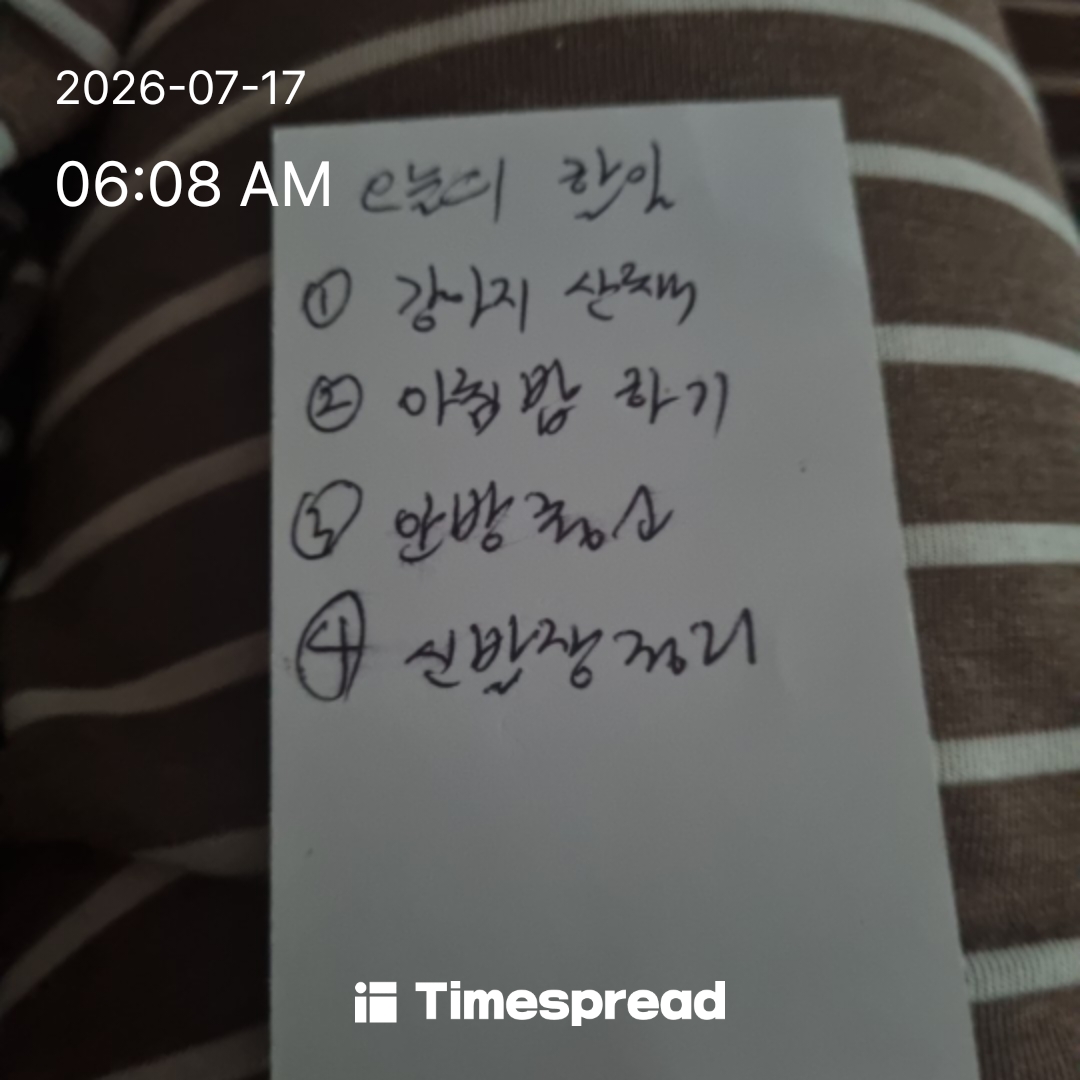 2026-07-17
06:08 AM
오늘의 한일
① 강아지 산책
② 아침밥 하기
③ 안방 청소
④ 신발장 정리
Timespread